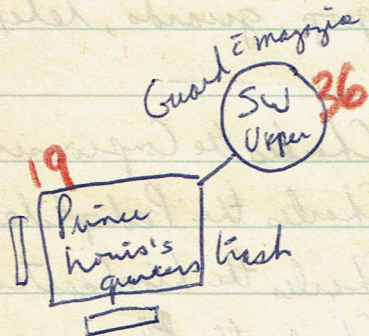 Guard c̄ magazine
SW
Upper
36
19
Prince
Louis's
quarters
trash